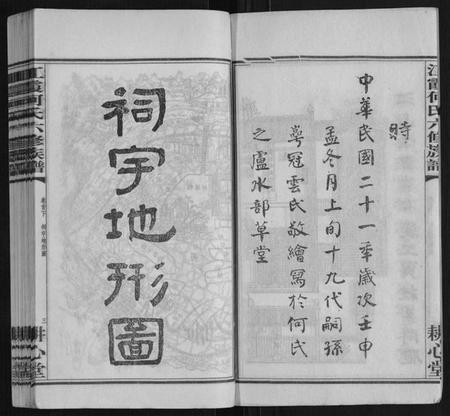 江霞何氏六修族譜
耕心堂
時
中華民國二十一年歲次壬申
孟冬月上旬十九代嗣孫
冠雲氏敬繪寫於何氏
之廬水部草堂
祠宇地形圖
江霞何氏六修族譜
耕心堂